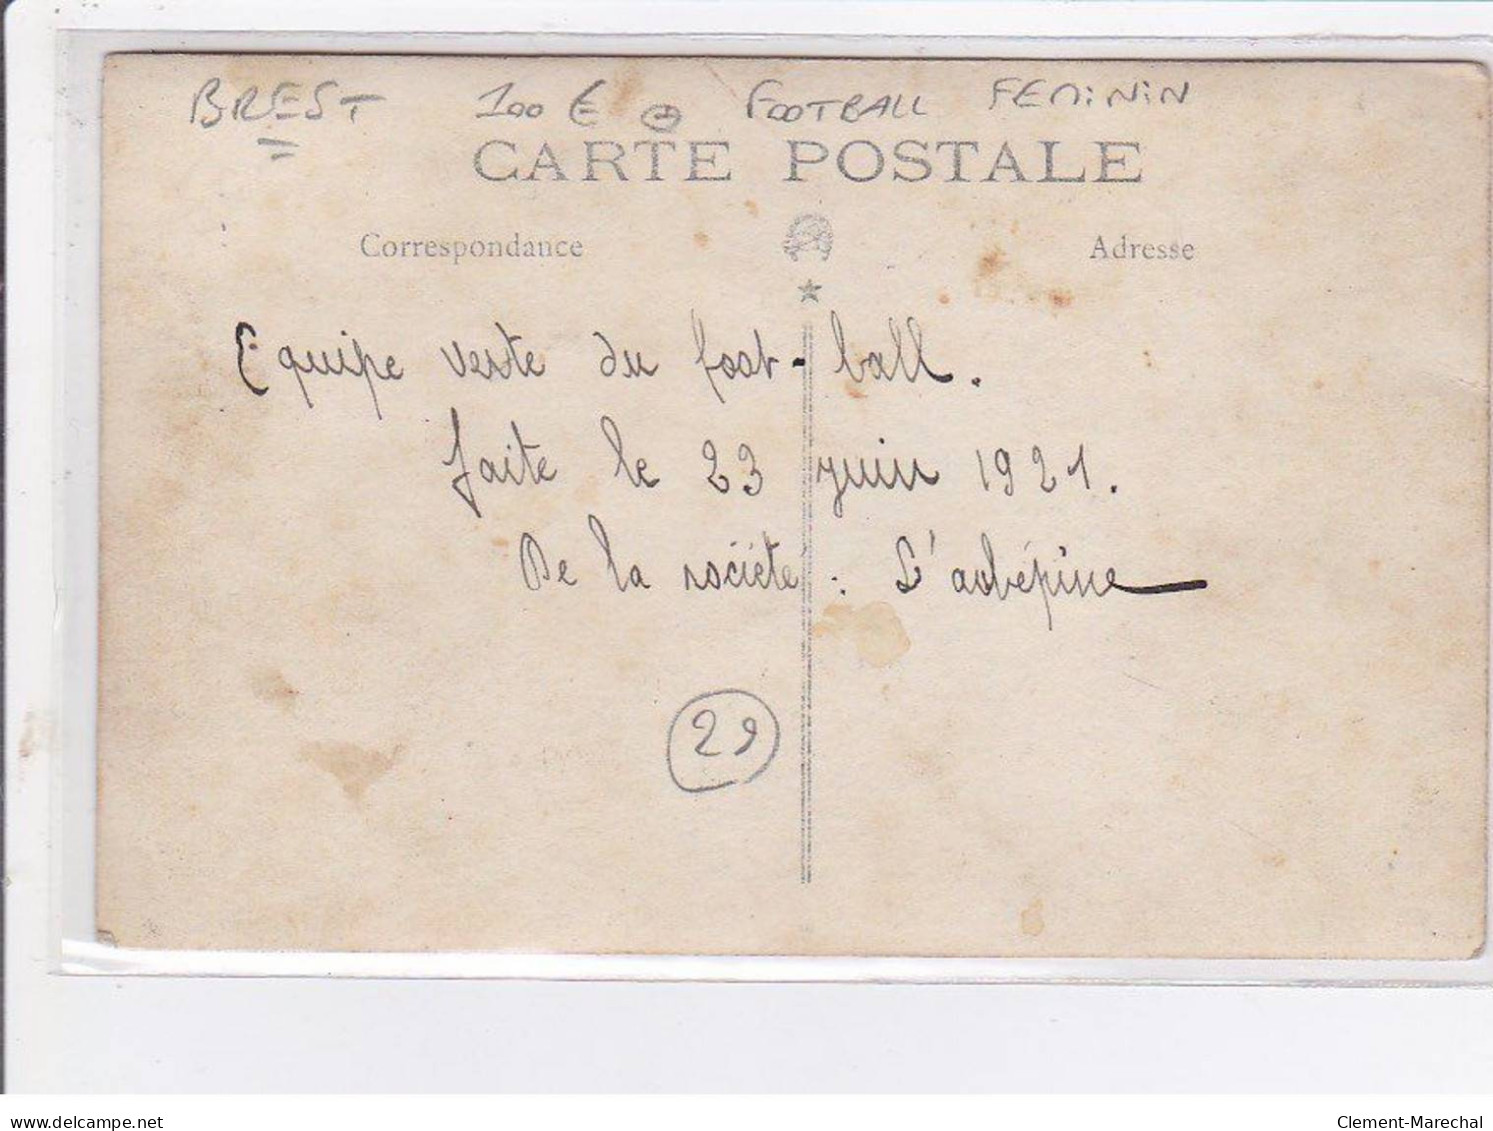 BREST 100 € FOOTBALL FEMININ
CARTE POSTALE
Correspondance Adresse
Equipe verte du foot-ball.
faite le 23 juin 1921.
De la société : L'aubépine
29
delcampe.net Clement-Marechal